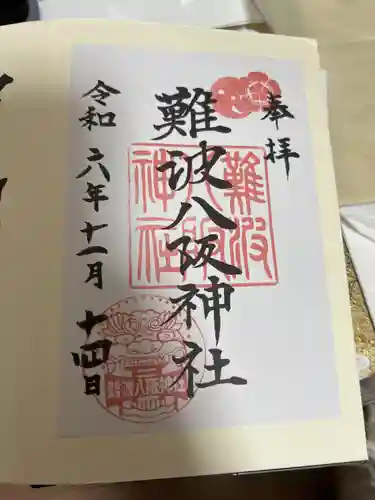 奉拝
難波八阪神社
難波
八阪
神社
令和六年十一月十四日